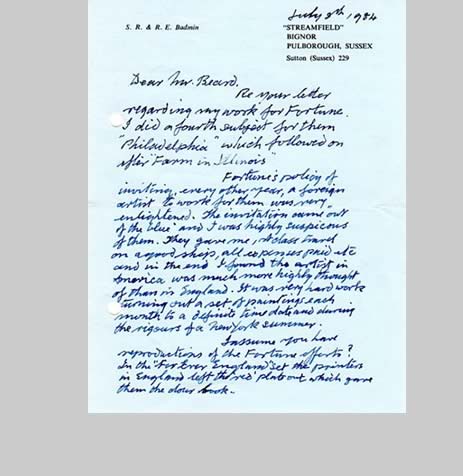 July 8th, 1984
S. R. & R. E. Badmin
"STREAMFIELD"
BIGNOR
PULBOROUGH, SUSSEX
Sutton (Sussex) 229
Dear Mr. Beard.
Re your letter
regarding my work for Fortune.
I did a fourth subject for them
"Philadelphia" which followed on
after "Farm in Illinois"
Fortune's policy of
inviting, every other year, a foreign
artist to work for them was very
enlightened. The invitation came out
of the 'blue' and I was highly suspicious
of them. They gave me, 1st class travel
on a good ship, all expenses paid etc
and in the end I found the artist in
America was much more highly thought
of than in England. It was very hard work
turning out a set of paintings each
month to a definite time date and during
the rigours of a New York summer.
I assume you have
reproductions of the Fortune efforts?
In the "For Ever England" set the printers
in England left the 'red' plate out which gave
them the dour look.